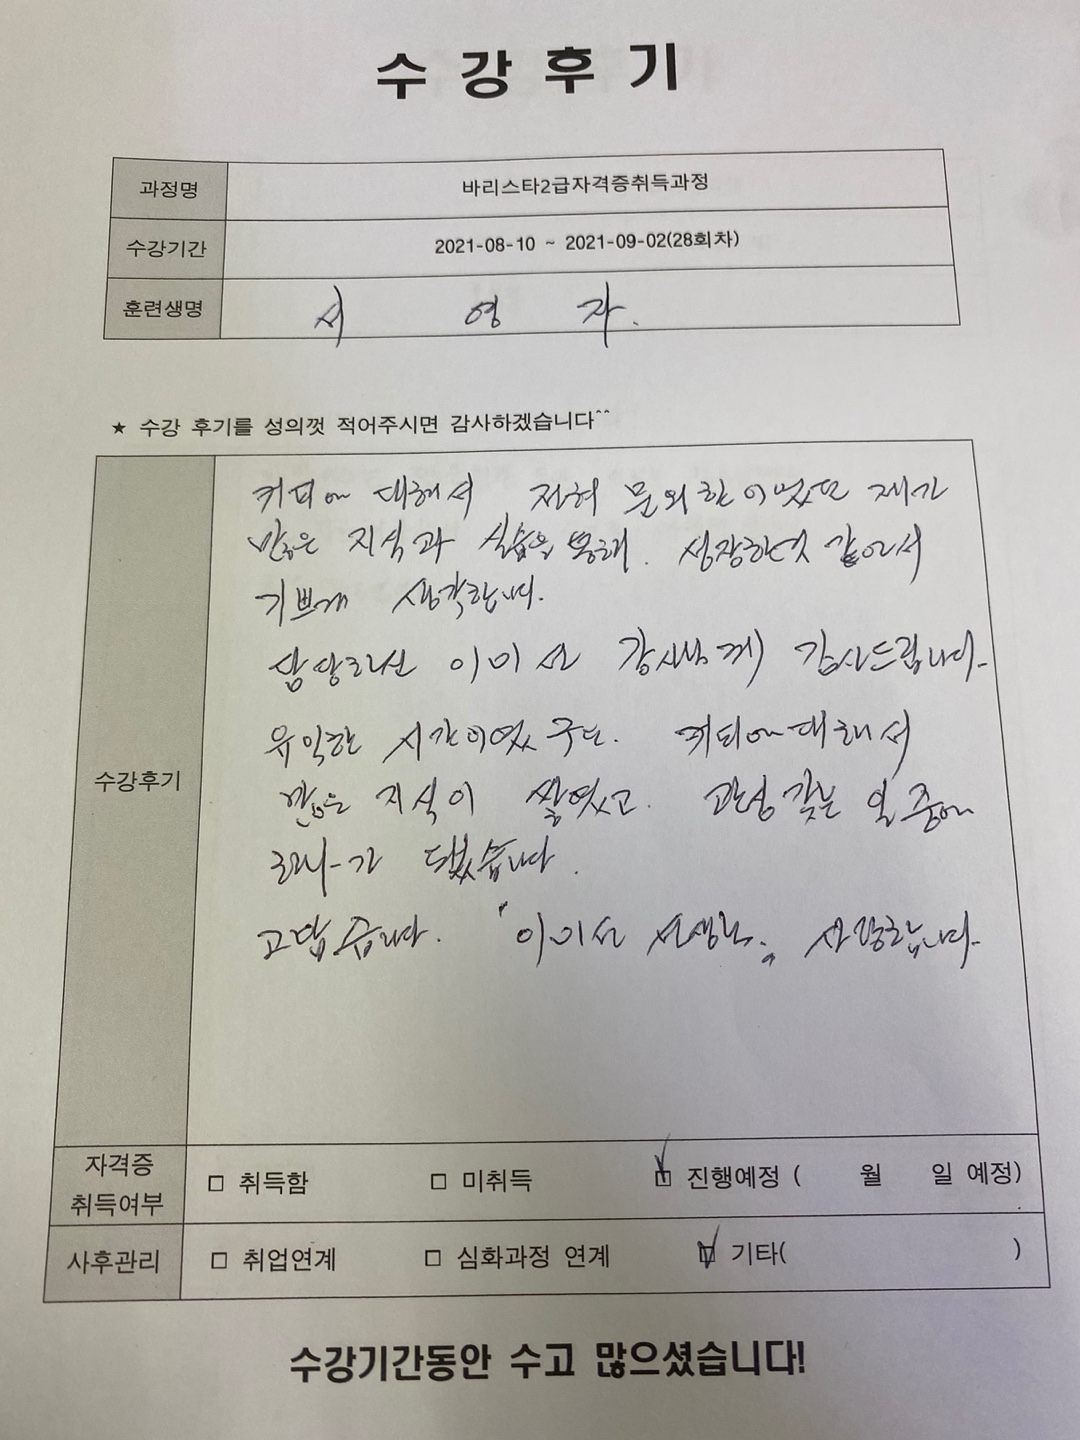 수 강 후 기
과정명 바리스타2급자격증취득과정
수강기간 2021-08-10 ~ 2021-09-02(28회차)
훈련생명 서 영 자.
★ 수강 후기를 성의껏 적어주시면 감사하겠습니다^^
수강후기
커피에 대해서 전혀 문외한이었던 제가
많은 지식과 실습을 통해. 성장한것 같아서
기쁘게 생각합니다.
담당하신 이미선 강사님께 감사드립니다-
유익한 시간이였구요. 커피에대해서
많은 지식이 쌓였고. 관심 갖는 일 중에
하나-가 되었습니다.
고맙습니다. 이미선 선생님. 사랑합니다-
자격증
취득여부 □ 취득함 □ 미취득 ☑ 진행예정 ( 월 일 예정)
사후관리 □ 취업연계 □ 심화과정 연계 ☑ 기타( )
수강기간동안 수고 많으셨습니다!